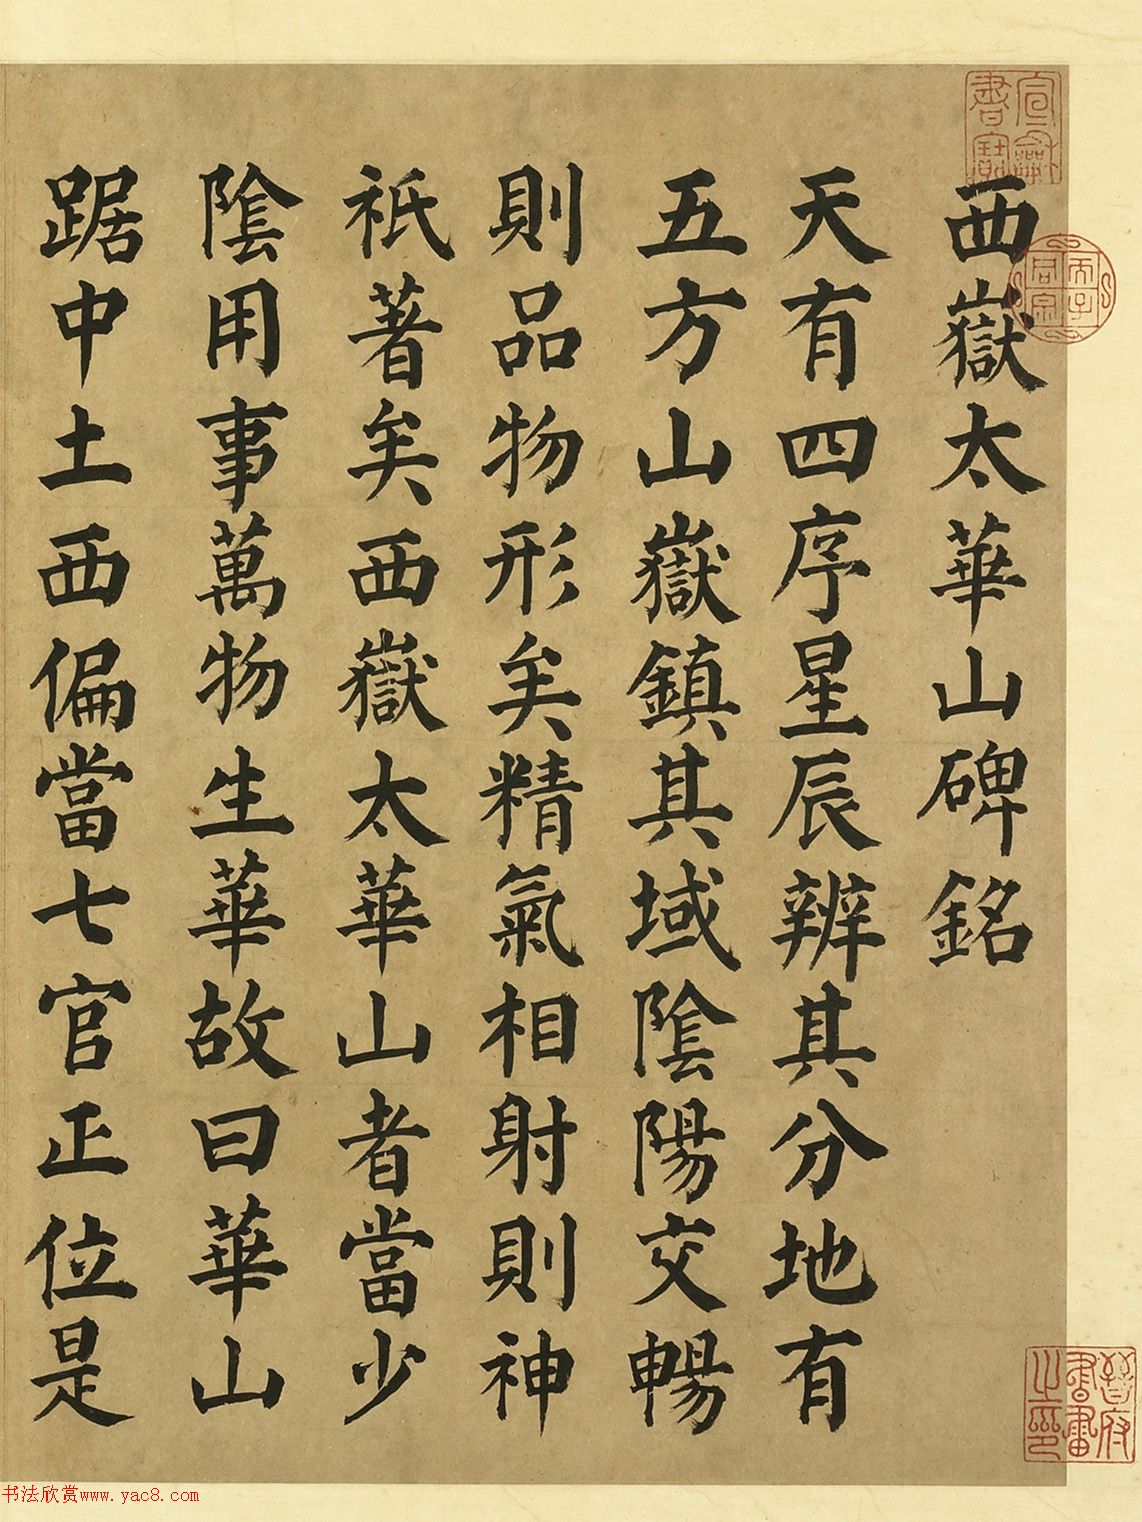 西嶽太華山碑銘
天有四序星辰辨其分地有
五方山嶽鎮其域陰陽交暢
則品物形矣精氣相射則神
祇著矣西嶽太華山者當少
陰用事萬物生華故曰華山
踞中土西偏當七官正位是
晉府書畫之印
书法欣赏www.yac8.com